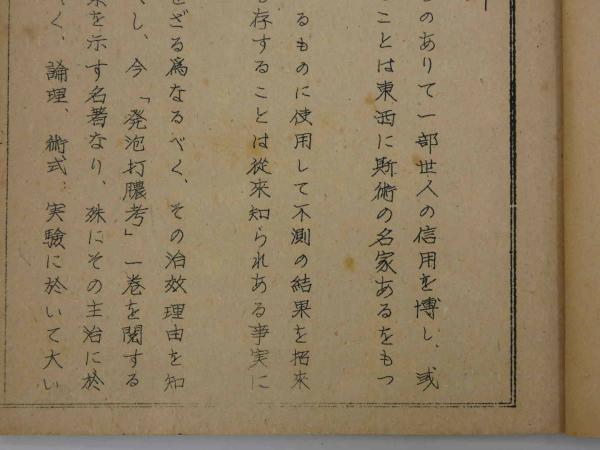 のありて一部世人の信用を博し、或
ことは東西に斯術の名家あるをもつ
るものに使用して不測の結果を招来
存することは従来知られある事実に
ざる為なるべく、その治效理由を知
し、今「発泡打膿考」一巻を閲する
を示す名著なり、殊にその主治に於
く、論理、術式、実験に於いて大い